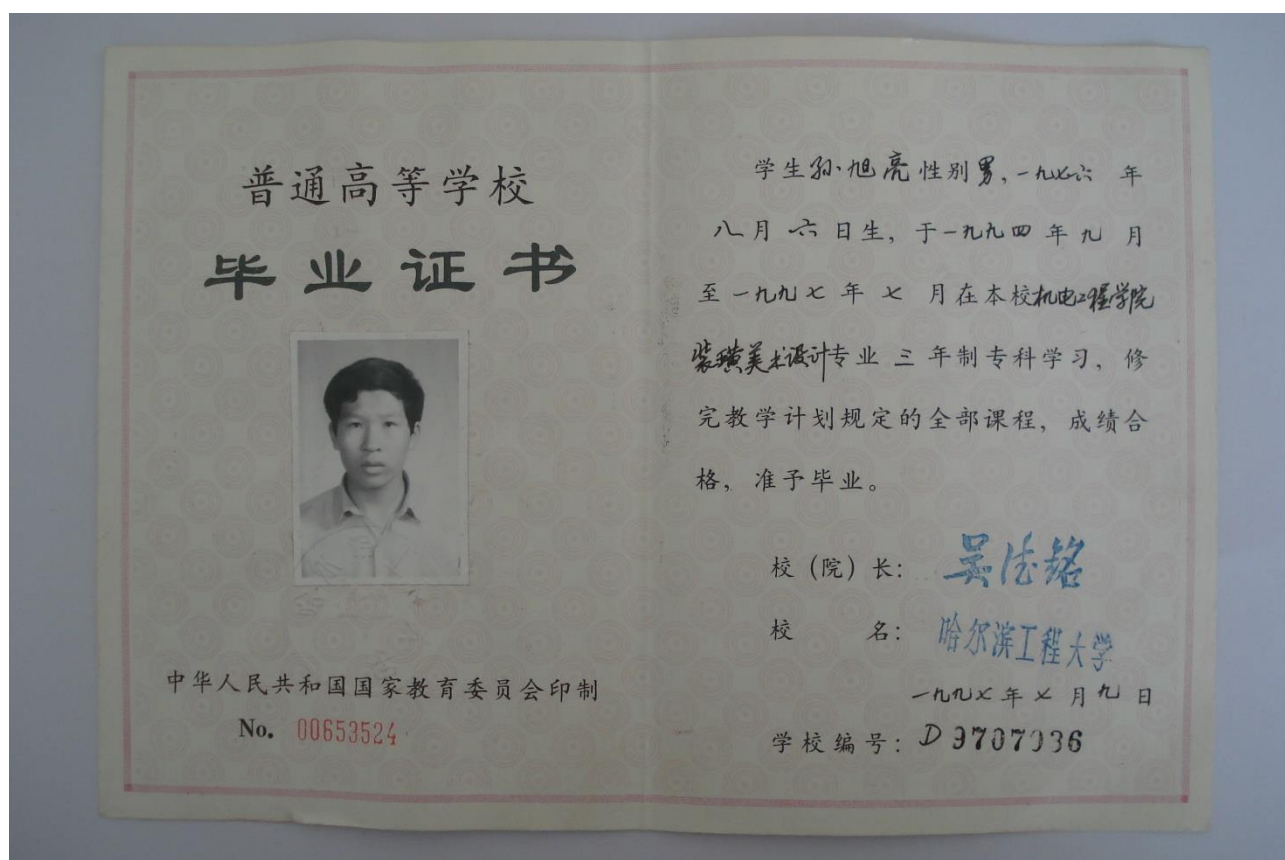 普通高等学校
毕业证书
中华人民共和国国家教育委员会印制
No. 00653524
学生孙旭亮性别男,一九七六 年
八月 六 日生, 于一九九四 年 九 月
至 一九九七 年 七 月在本校机电工程学院
装璜美术设计专业 三 年制专科学习, 修
完教学计划规定的全部课程, 成绩合
格, 准予毕业。
校(院)长: 吴德铭
校 名: 哈尔滨工程大学
一九九七 年 七 月 九 日
学校编号: D 9707036